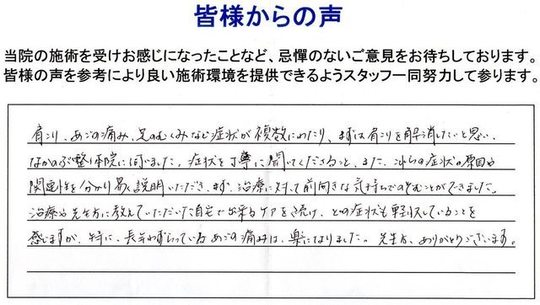 皆様からの声
当院の施術を受けお感じになったことなど、忌憚のないご意見をお待ちしております。
皆様の声を参考により良い施術環境を提供できるようスタッフ一同努力して参ります。
肩こり、あごの痛み、足のむくみなど症状が複数にわたり、まずは肩こりを解消したいと思い、
なかのぶ整骨院に伺いました。症状を丁寧に聞いてくださること、また、これらの症状の原因や
関連性を分かり易く説明いただき、まず、治療に対して前向きな気持ちでのぞむことができました。
治療や先生方に教えていただいた自宅で出来るケアを続け、どの症状も軽減していることを
感じますが、特に、長年わずらっているあごの痛みは、楽になりました。先生方、ありがとうございます。